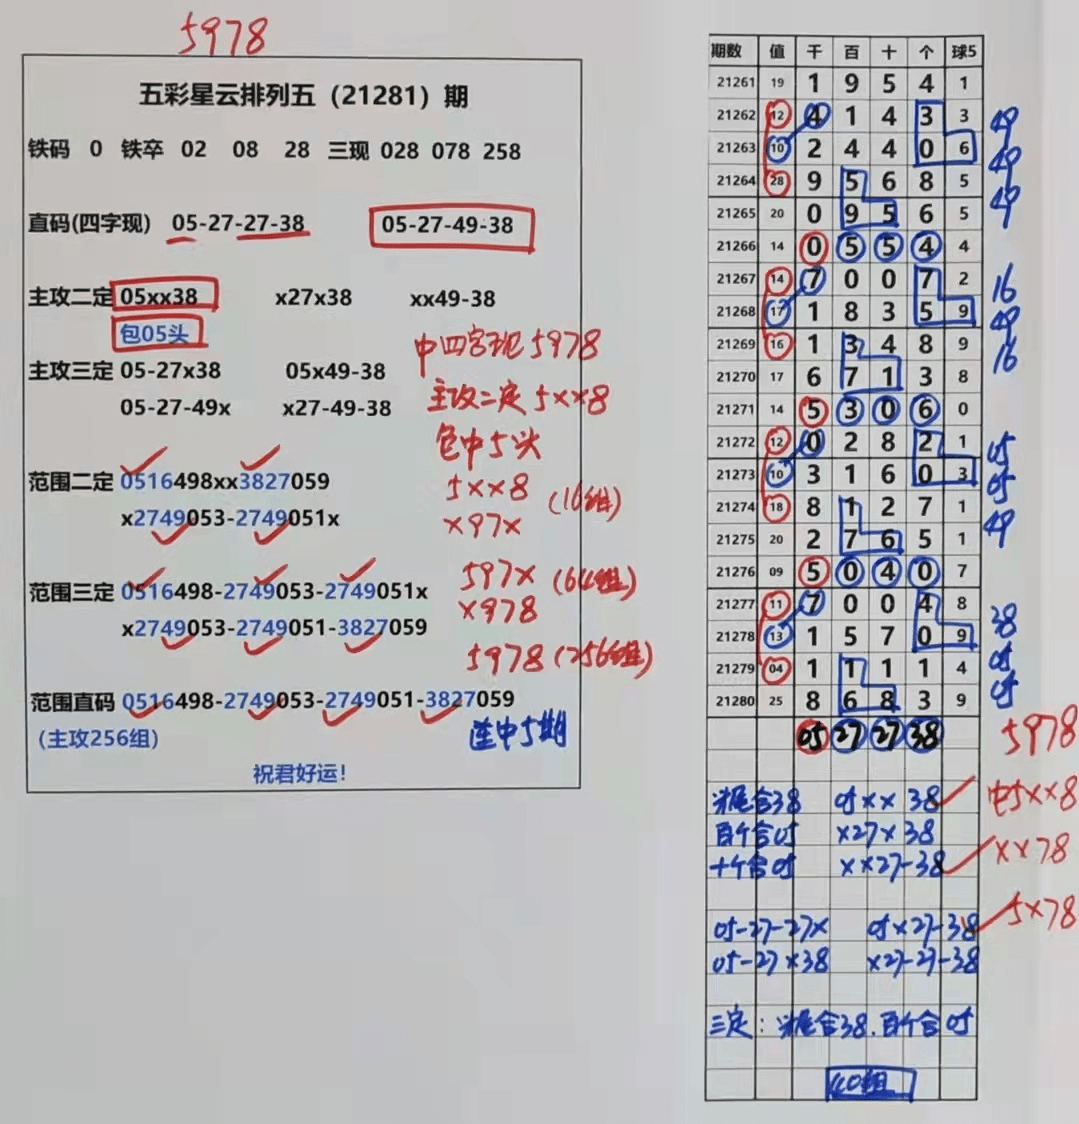 5978
五彩星云排列五（21281）期
铁码 0 铁卒 02 08 28 三现 028 078 258
直码(四字现) 05-27-27-38 05-27-49-38
主攻二定 05xx38 x27x38 xx49-38
包05头
主攻三定 05-27x38 05x49-38
05-27-49x x27-49-38
范围二定 0516498xx3827059
x2749053-2749051x
范围三定 0516498-2749053-2749051x
x2749053-2749051-3827059
范围直码 0516498-2749053-2749051-3827059
(主攻256组)
祝君好运!
中四字现5978
主攻二定5××8
包中5头
5××8 (16组)
×97×
597× (64组)
×978
5978 (256组)
连中5期
期数 值 千 百 十 个 球5
21261 19 1 9 5 4 1
21262 12 4 1 4 3 3
21263 10 2 4 4 0 6
21264 28 9 5 6 8 5
21265 20 0 9 5 6 5
21266 14 0 5 5 4 4
21267 14 7 0 0 7 2
21268 17 1 8 3 5 9
21269 16 1 3 4 8 9
21270 17 6 7 1 3 8
21271 14 5 3 0 6 0
21272 12 0 2 8 2 1
21273 10 3 1 6 0 3
21274 18 8 1 2 7 1
21275 20 2 7 6 5 1
21276 09 5 0 4 0 7
21277 11 7 0 0 4 8
21278 13 1 5 7 0 9
21279 04 1 1 1 1 4
21280 25 8 6 8 3 9
05 27 27 38
49
49
49
16
49
16
05
05
49
38
05
05
5978
头尾合38 05×× 38 中5××8
百个合05 ×27×38
十个合05 ××27-38 ××78
05-27-27× 05×27-38 5×78
05-27×38 ×27-27-38
三定：头尾合38.百个合05
40组